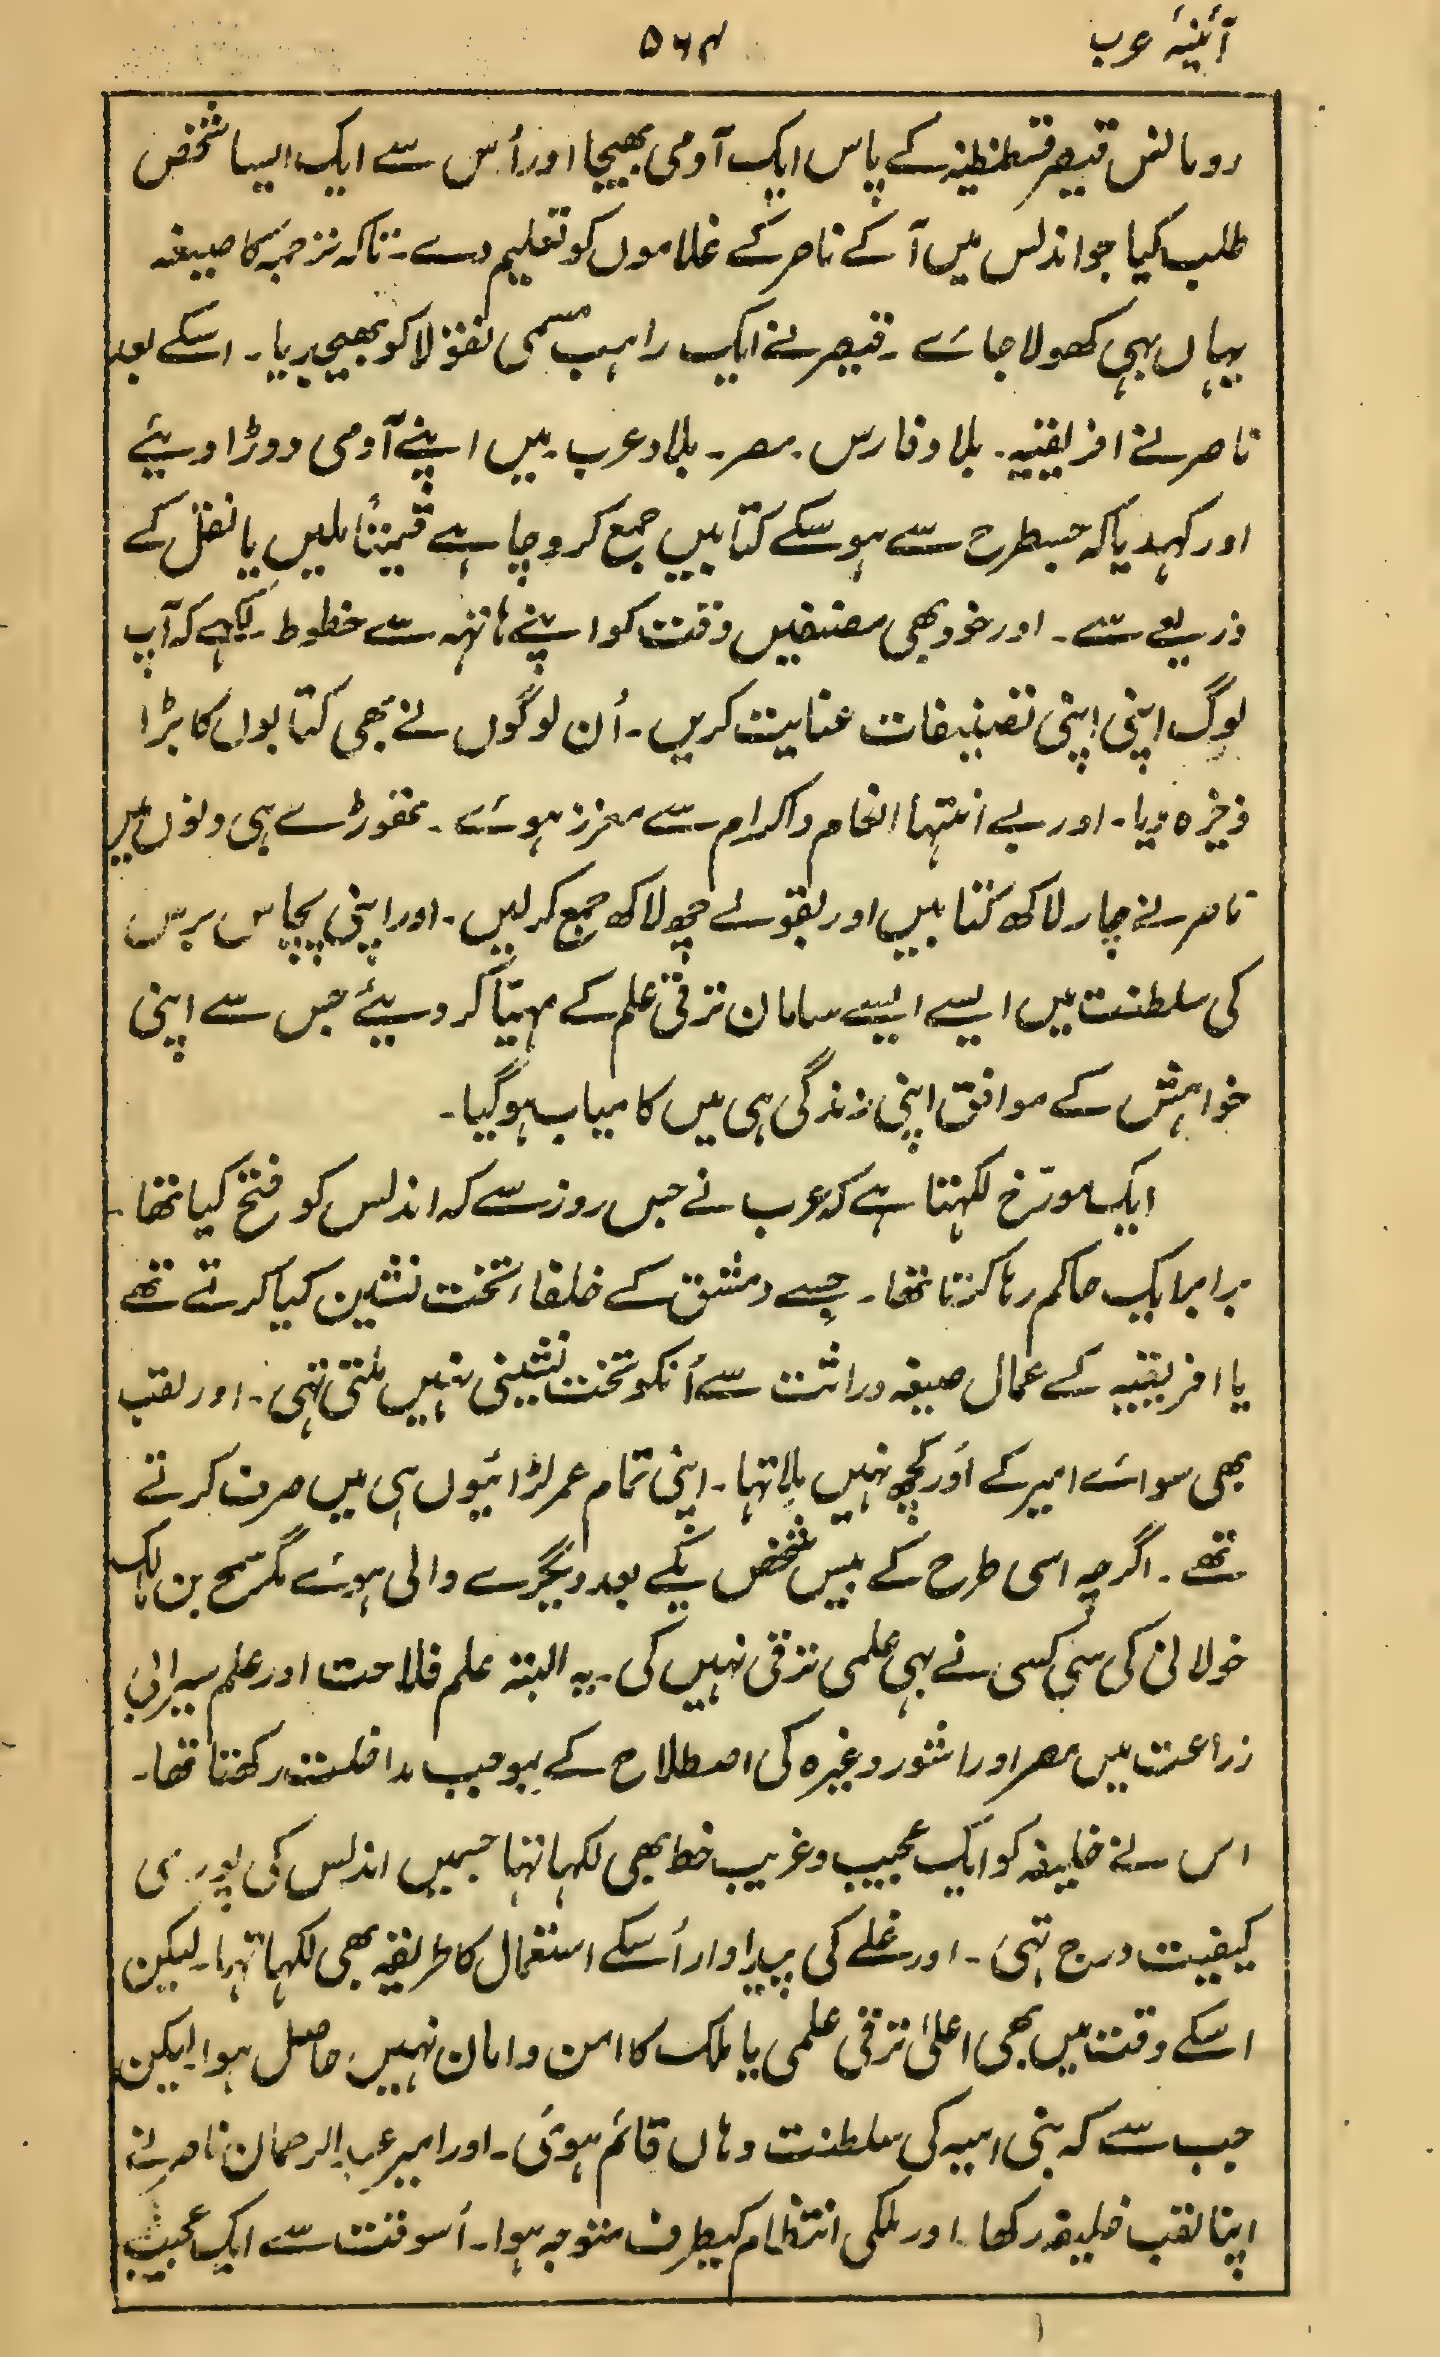 آئینۂ عرب
۵۶۴
رومانس قیصر قسطنطنیہ کے پاس ایک آدمی بھیجا اور اُس سے ایک ایسا شخص
طلب کیا جو اندلس میں آ کے ناصر کے غلاموں کو تعلیم دے۔ تاکہ ترجمہ کا صیغہ
یہاں بہی کھولا جائے ۔ قیصر نے ایک راہب مسمی نقولا کو بھیجدیا۔ اسکے بعد
ناصر نے افریقیہ۔ بلاد فارس۔ مصر۔ بلاد عرب۔ میں اپنے آدمی دوڑا دیئے
اور کہدیا کہ جسطرح سے ہو سکے کتابیں جمع کرو چاہے قیمتاً ملیں یا نقل کے
ذریعے سے۔ اور خود بھی مصنفین وقت کو اپنے ہاتہہ سے خطوط لکہے کہ آپ
لوگ اپنی اپنی تصنیفات عنایت کریں۔ اُن لوگوں نے بھی کتابوں کا بڑا
ذخیرہ دیا۔ اور بے انتہا انعام و اکرام سے معزز ہوئے ۔ تھوڑے ہی دنوں میں
ناصر نے چار لاکھ کتابیں اور بقولے چھ لاکھ جمع کر لیں۔ اور اپنی پچاس برس
کی سلطنت میں ایسے ایسے سامان ترقی علم کے مہیّا کر دیئے جس سے اپنی
خواہش کے موافق اپنی زندگی ہی میں کامیاب ہو گیا۔
ایک مورّخ لکہتا ہے کہ عرب نے جس روز سے کہ اندلس کو فتح کیا تھا۔
برابر ایک حاکم رہا کرتا تھا۔ جسے دمشق کے خلفاء تخت نشین کیا کرتے تھے
یا افریقیہ کے عمال صیغہ وراثت سے اُنکو تخت نشینی نہیں ملتی تہی۔ اور لقب
بھی سوائے امیر کے اَور کچھ نہیں ملا تہا۔ اپنی تمام عمر لڑائیوں ہی میں صرف کرتے
تھے ۔ اگرچہ اسی طرح کے بیس شخص یکے بعد دیگرے والی ہوئے مگر سمح بن مالک
خولانی کی سی کسی نے بہی علمی ترقی نہیں کی۔ یہ البتہ علم فلاحت اور علم سیرابی
زراعت میں مصر اور اشور وغیرہ کی اصطلاح کے بموجب مداخلت رکھتا تھا۔
اس نے خلیفہ کو ایک عجیب و غریب خط بھی لکہا تہا جسمیں اندلس کی پوری
کیفیت درج تہی ۔ اور غلے کی پیداوار اُسکے استعمال کا طریقہ بھی لکہا تہا۔ لیکن
اسکے وقت میں بھی اعلیٰ ترقی علمی یا ملک کا امن و امان نہیں حاصل ہوا۔ لیکن
جب سے کہ بنی امیہ کی سلطنت وہاں قائم ہوئی۔ اور امیر عبدالرحمان ناصر نے
اپنا لقب خلیفہ رکھا۔ اور ملکی انتظام کیطرف متوجہ ہوا۔ اُسوقت سے ایک عجیب